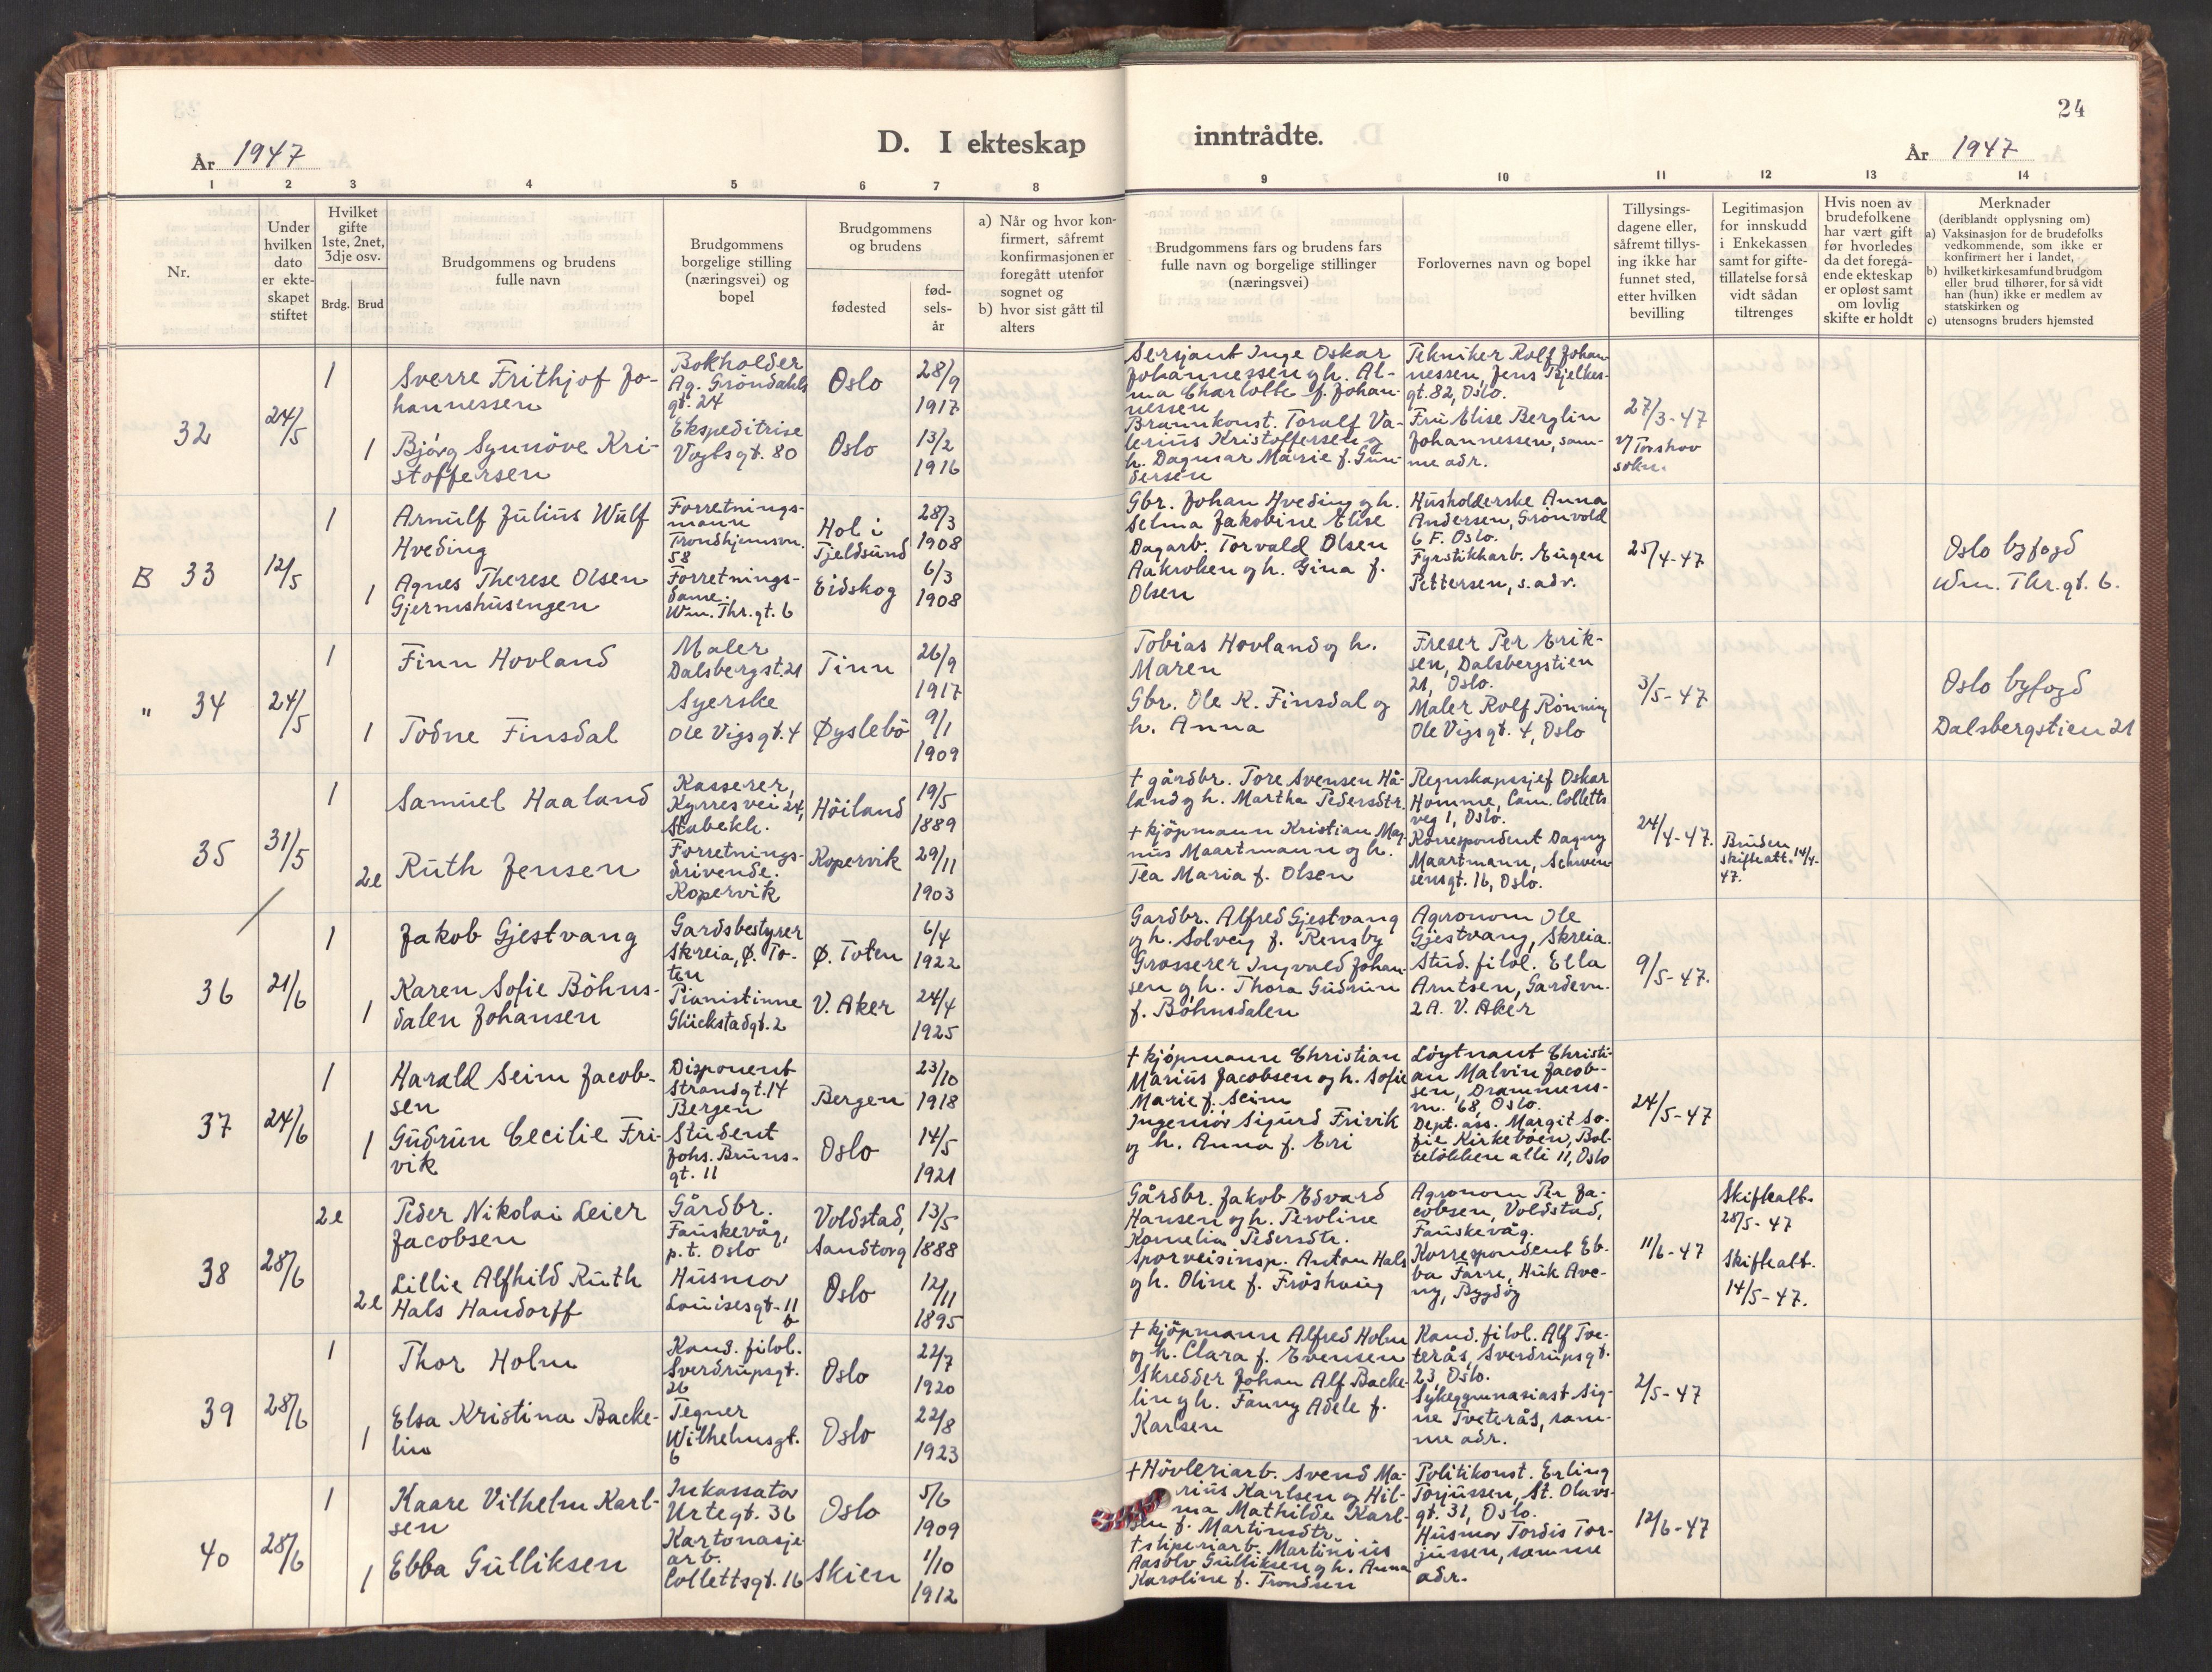 24
D. I ekteskap inntrådte.
År 1947
År 1947
1 2 3 4 5 6 7 8 9 10 11 12 13 14
Nr.
Under
hvilken
dato
er ekte-
skapet
stiftet
Hvilket
gifte
1ste, 2net,
3dje osv.
Brdg. Brud
Brudgommens og brudens
fulle navn
Brudgommens
borgelige stilling
(næringsvei) og
bopel
Brudgommens
og brudens
fødested
fød-
sels-
år
a) Når og hvor kon-
firmert, såfremt
konfirmasjonen er
foregått utenfor
sognet og
b) hvor sist gått til
alters
Brudgommens fars og brudens fars
fulle navn og borgelige stillinger
(næringsvei)
Forlovernes navn og bopel
Tillysings-
dagene eller,
såfremt tillys-
ing ikke har
funnet sted,
etter hvilken
bevilling
Legitimasjon
for innskudd
i Enkekassen
samt for gifte-
tillatelse for så
vidt sådan
tiltrenges
Hvis noen av
brudefolkene
har vært gift
før hvorledes
da det foregå-
ende ekteskap
er opløst samt
om lovlig
skifte er holdt
Merknader
(deriblandt opplysning om)
a) Vaksinasjon for de brudefolks
vedkommende, som ikke er
konfirmert her i landet,
b) hvilket kirkesamfund brudgom
eller brud tilhører, for så vidt
han (hun) ikke er medlem av
statskirken og
c) utensogns bruders hjemsted
32
24/5
1
Sverre Frithjof Jo-
hannessen
Bokholder
Ag. Gröndahls
gt. 24
Oslo
28/9
1917
1
Bjórg Synnöve Kri-
stoffersen
Ekspeditrise
Vogtsgt. 80
Oslo
13/2
1916
Sersjant Inge Oskar
Johannessen g h. Al-
ma Charlotte f. Johan-
nessen
Brannkonst. Toralf Va-
lerius Kristoffersen og
h. Dagmar Marie f. Gun-
dersen
Tekniker Rolf Johan
nessen, Jens Bjelkes-
gt. 82, Oslo.
Fru Elise Berglin
Johannessen, sam-
me adr.
27/3-47
i/ Torshov
sokn.
B 33
12/5
1
Arnulf Julius Wulf
Hveding
Forretnings-
mann
Trondhjemsvn.
58
Hol i
Tjeldsund
28/3
1908
1
Agnes Therese Olsen
Gjermshusengen
Forretnings-
dame.
Wm. Thr. gt. 6
Eidskog
6/3
1908
Gbr. Johan Hveding g h.
Selma Jakobine Elise
Dagarb. Torvald Olsen
Aakroken g h. Gina f.
Olsen
Husholderske Anna
Andersen, Grönvold
6 F. Oslo.
Fyrstikkarb. Eugen
Pettersen, s. adr.
25/4-47
Oslo byfogd
Wm. Thr. gt. 6.
" 34
24/5
1
Finn Hovland
Maler
Dalsbergst. 21
Tinn
26/9
1917
1
Todne Finsdal
Syerske
Ole Vigs gt. 4
Øyslebö
9/1
1909
Tobias Hovland og h.
Maren
Gbr. Ole K. Finsdal og
h. Anna
Freser Per Erik-
sen, Dalsbergstien
21, Oslo.
Maler Rolf Rönning
Ole Vigs gt. 4, Oslo
3/5-47
Oslo byfogd
Dalsbergstien 21
35
31/5
1
Samuel Haaland
Kasserer,
Kyrres vei 24,
Stabekk.
Höiland
19/5
1889
2e
Ruth Jensen
Forretnings-
drivende.
Kopervik
Kopervik
29/11
1903
+ gårdbr. Tore Svensen Hå-
land g h. Martha Pedersdtr.
+ kjöpmann Kristian Mag
nus Maartmann og h.
Tea Maria f. Olsen
Regnskapssjef Oskar
Homme, Cam. Colletts
veg 1, Oslo.
Korrespondent Dagny
Maartmann, Schwen
sensgt. 16, Oslo.
24/4-47.
Bruden
skifteatt. 14/4-
47.
36
21/6
1
Jakob Gjestvang
Gardsbestyrer
Skreia, Ø. To-
ten
Ø. Toten
6/4
1922
1
Karen Sofie Böhns-
dalen Johansen
Pianistinne
Glückstadgt. 2
V. Aker
24/4
1925
Gardbr. Alfred Gjestvang
og h. Solveig f. Rensby
Grosserer Ingvald Johan-
sen g h. Thora Gudrun
f. Böhnsdalen
Agronom Ole
Gjestvang, Skreia.
Stud. filol. Ella
Arntsen, Gardevn.
2 A. V. Aker
9/5-47.
37
24/6
1
Harald Seim Jacob-
sen
Disponent
Strandgt. 14
Bergen
Bergen
23/10
1918
1
Gudrun Cecilie Fri-
vik
Student
Johs. Bruns-
gt. 11
Oslo
14/5
1921
+ kjöpmann Christian
Marius Jacobsen og h. Sofie
Marie f. Seim
Ingeniör Sigurd Frivik
og h. Anna f. Eri
Löytnant Christi-
an Malvin Jacob-
sen, Drammens-
vn. 68, Oslo.
Dept. ass. Margit So-
fie Kirkeböen, Bol-
telökken alli 11, Oslo
24/5-47
38
28/6
2e
Peder Nikolai Leier
Jacobsen
Gårdbr.
Fauskevåg,
p.t. Oslo
Voldstad,
Sandtorg
13/5
1888
2e
Lillie Alfhild Ruth
Hals Handorff
Husmor
Louisesgt. 11
b
Oslo
12/11
1895
Gårdbr. Jakob Edvard
Hansen og h. Peroline
Kornelia Pedersdtr.
Sporveisinsp. Anton Hals
og h. Oline f. Fröshaug
Agronom Per Ja-
cobsen, Voldstad,
Fauskevåg.
Korrespondent Eb-
ba Farre, Huk Ave-
ny, Bygdöy
11/6-47
Skifteatt.
28/5-47
Skifteatt.
14/5-47.
39
28/6
1
Thor Holm
Kand. filol.
Sverdrupsgt.
26
Oslo
22/7
1920
1
Elsa Kristina Backe-
lin
Tegner
Wilhelmsgt.
6
Oslo
22/8
1923
+ kjöpmann Alfred Holm
og h. Clara f. Evensen
Skredder Johan Alf Backe-
lin g h. Fanny Adele f.
Karlsen
Kand. filol. Alf Tve-
terås, Sverdrupsgt.
23, Oslo.
Sykegymnasiast Sig-
ne Tveterås, sam-
me adr.
2/5-47
40
28/6
1
Kaare Vilhelm Karl-
sen
Inkassator
Urtegt. 36
Oslo
5/6
1909
1
Ebba Gulliksen
Kartonasje
arb.
Collettsgt. 16
Skien
1/10
1912
+ Hövleriarb. Svend Ma-
rius Karlsen og Hil-
ma Mathilde Karl-
sen f. Martinsdtr.
+ stiperiarb. Martinius
Aasolv Gulliksen g h. Anna
Karoline f. Trondsen
Politikonst. Erling
Torjussen, St. Olavs-
gt. 31, Oslo.
Husmor Tordis Tor-
jussen, samme
adr.
12/6-47